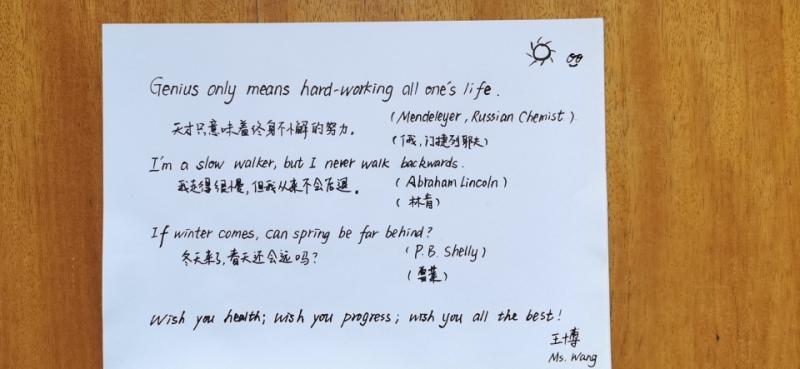 Genius only means hard-working all one's life.
(Mendeleyer, Russian Chemist)
天才只意味着终身不懈的努力。
(俄,门捷列耶夫)
I'm a slow walker, but I never walk backwards.
(Abraham Lincoln)
我走得很慢,但我从来不会后退。
(林肯)
If winter comes, can spring be far behind?
(P. B. Shelly)
冬天来了,春天还会远吗?
(雪莱)
Wish you health; wish you progress; wish you all the best!
王博
Ms. Wang